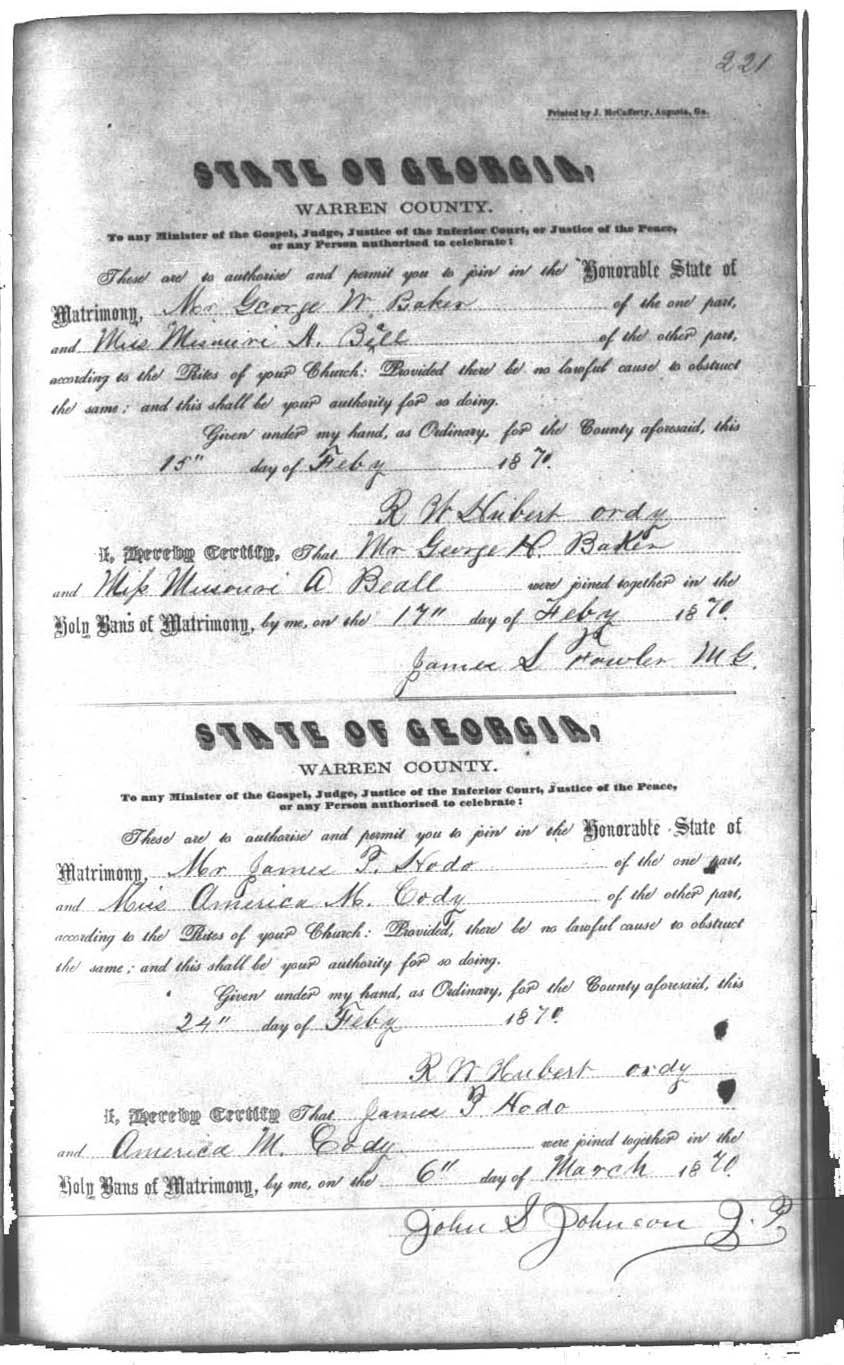 221
Printed by J. McCafferty, Augusta, Ga.
STATE OF GEORGIA,
WARREN COUNTY.
To any Minister of the Gospel, Judge, Justice of the Inferior Court, or Justice of the Peace,
or any Person authorised to celebrate:
These are to authorise and permit you to join in the Honorable State of
Matrimony, Mr George W. Baker of the one part,
and Miss Missouri A. Bell of the other part,
according to the Rites of your Church: Provided there be no lawful cause to obstruct
the same; and this shall be your authority for so doing.
Given under my hand, as Ordinary, for the County aforesaid, this
15" day of Feby 1870.
R W Hubert ordy
I, Hereby Certify, That Mr George H Baker
and Miss Missouri A Beall were joined together in the
Holy Bans of Matrimony, by me, on the 17" day of Feby 1870.
James S Fowler M G.
STATE OF GEORGIA,
WARREN COUNTY.
To any Minister of the Gospel, Judge, Justice of the Inferior Court, Justice of the Peace,
or any Person authorised to celebrate:
These are to authorise and permit you to join in the Honorable State of
Matrimony, Mr James T. Hodo of the one part,
and Miss America M. Cody of the other part,
according to the Rites of your Church: Provided, there be no lawful cause to obstruct
the same; and this shall be your authority for so doing.
Given under my hand, as Ordinary, for the County aforesaid, this
24" day of Feby 1870.
R W Hubert ordy
I, Hereby Certify That James T Hodo
and America M. Cody were joined together in the
Holy Bans of Matrimony, by me, on the 6" day of March 1870.
John S Johnson J. P.